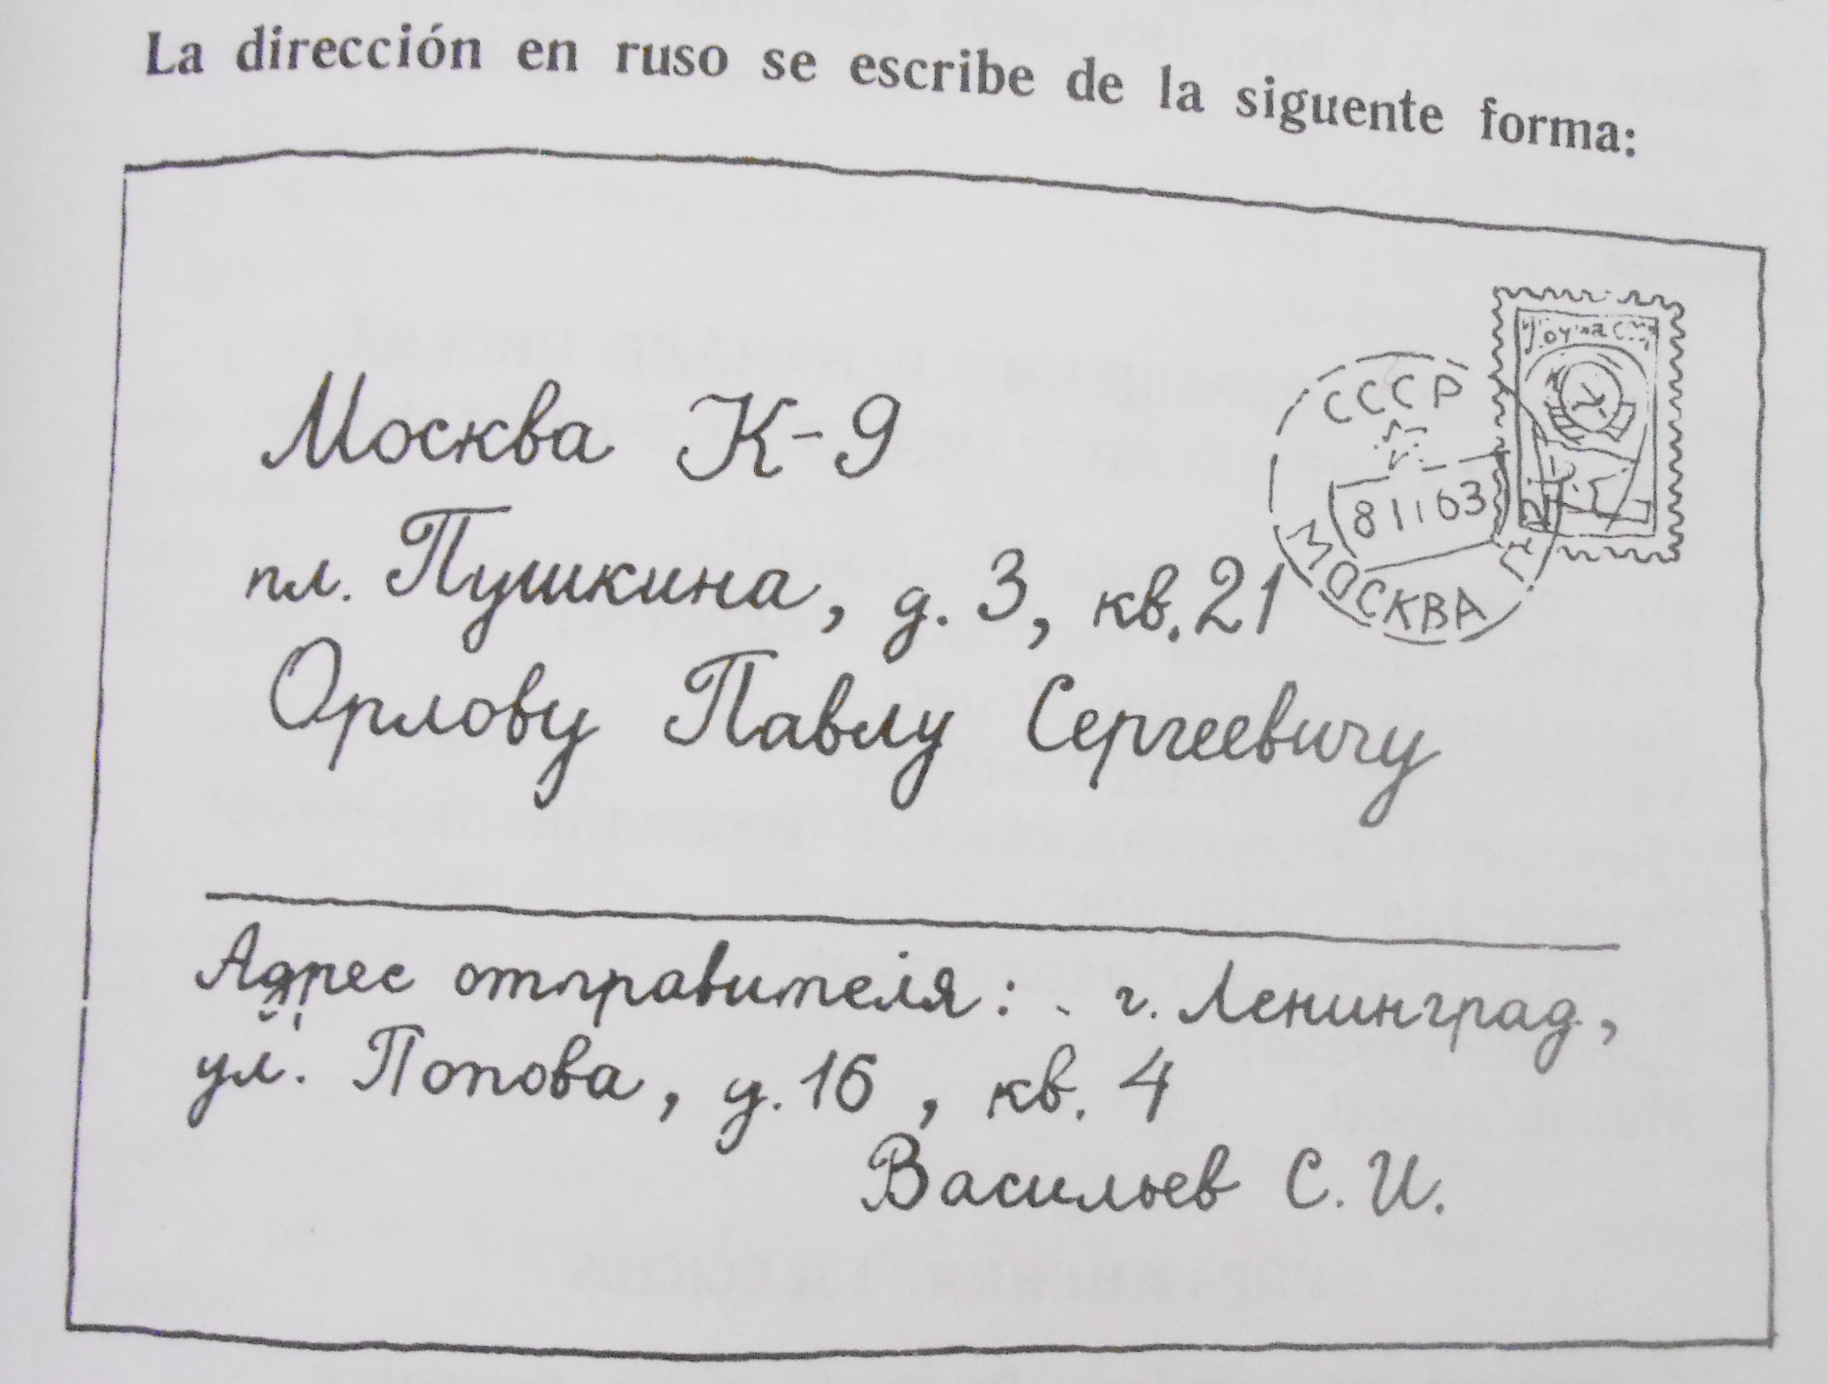 La dirección en ruso se escribe de la siguente forma:
СССР
8 1 63
МОСКВА
Москва К-9
пл. Пушкина, д. 3, кв. 21
Орлову Павлу Сергеевичу
Адрес отправителя: г. Ленинград,
ул. Попова, д. 16, кв. 4
Васильев С. И.